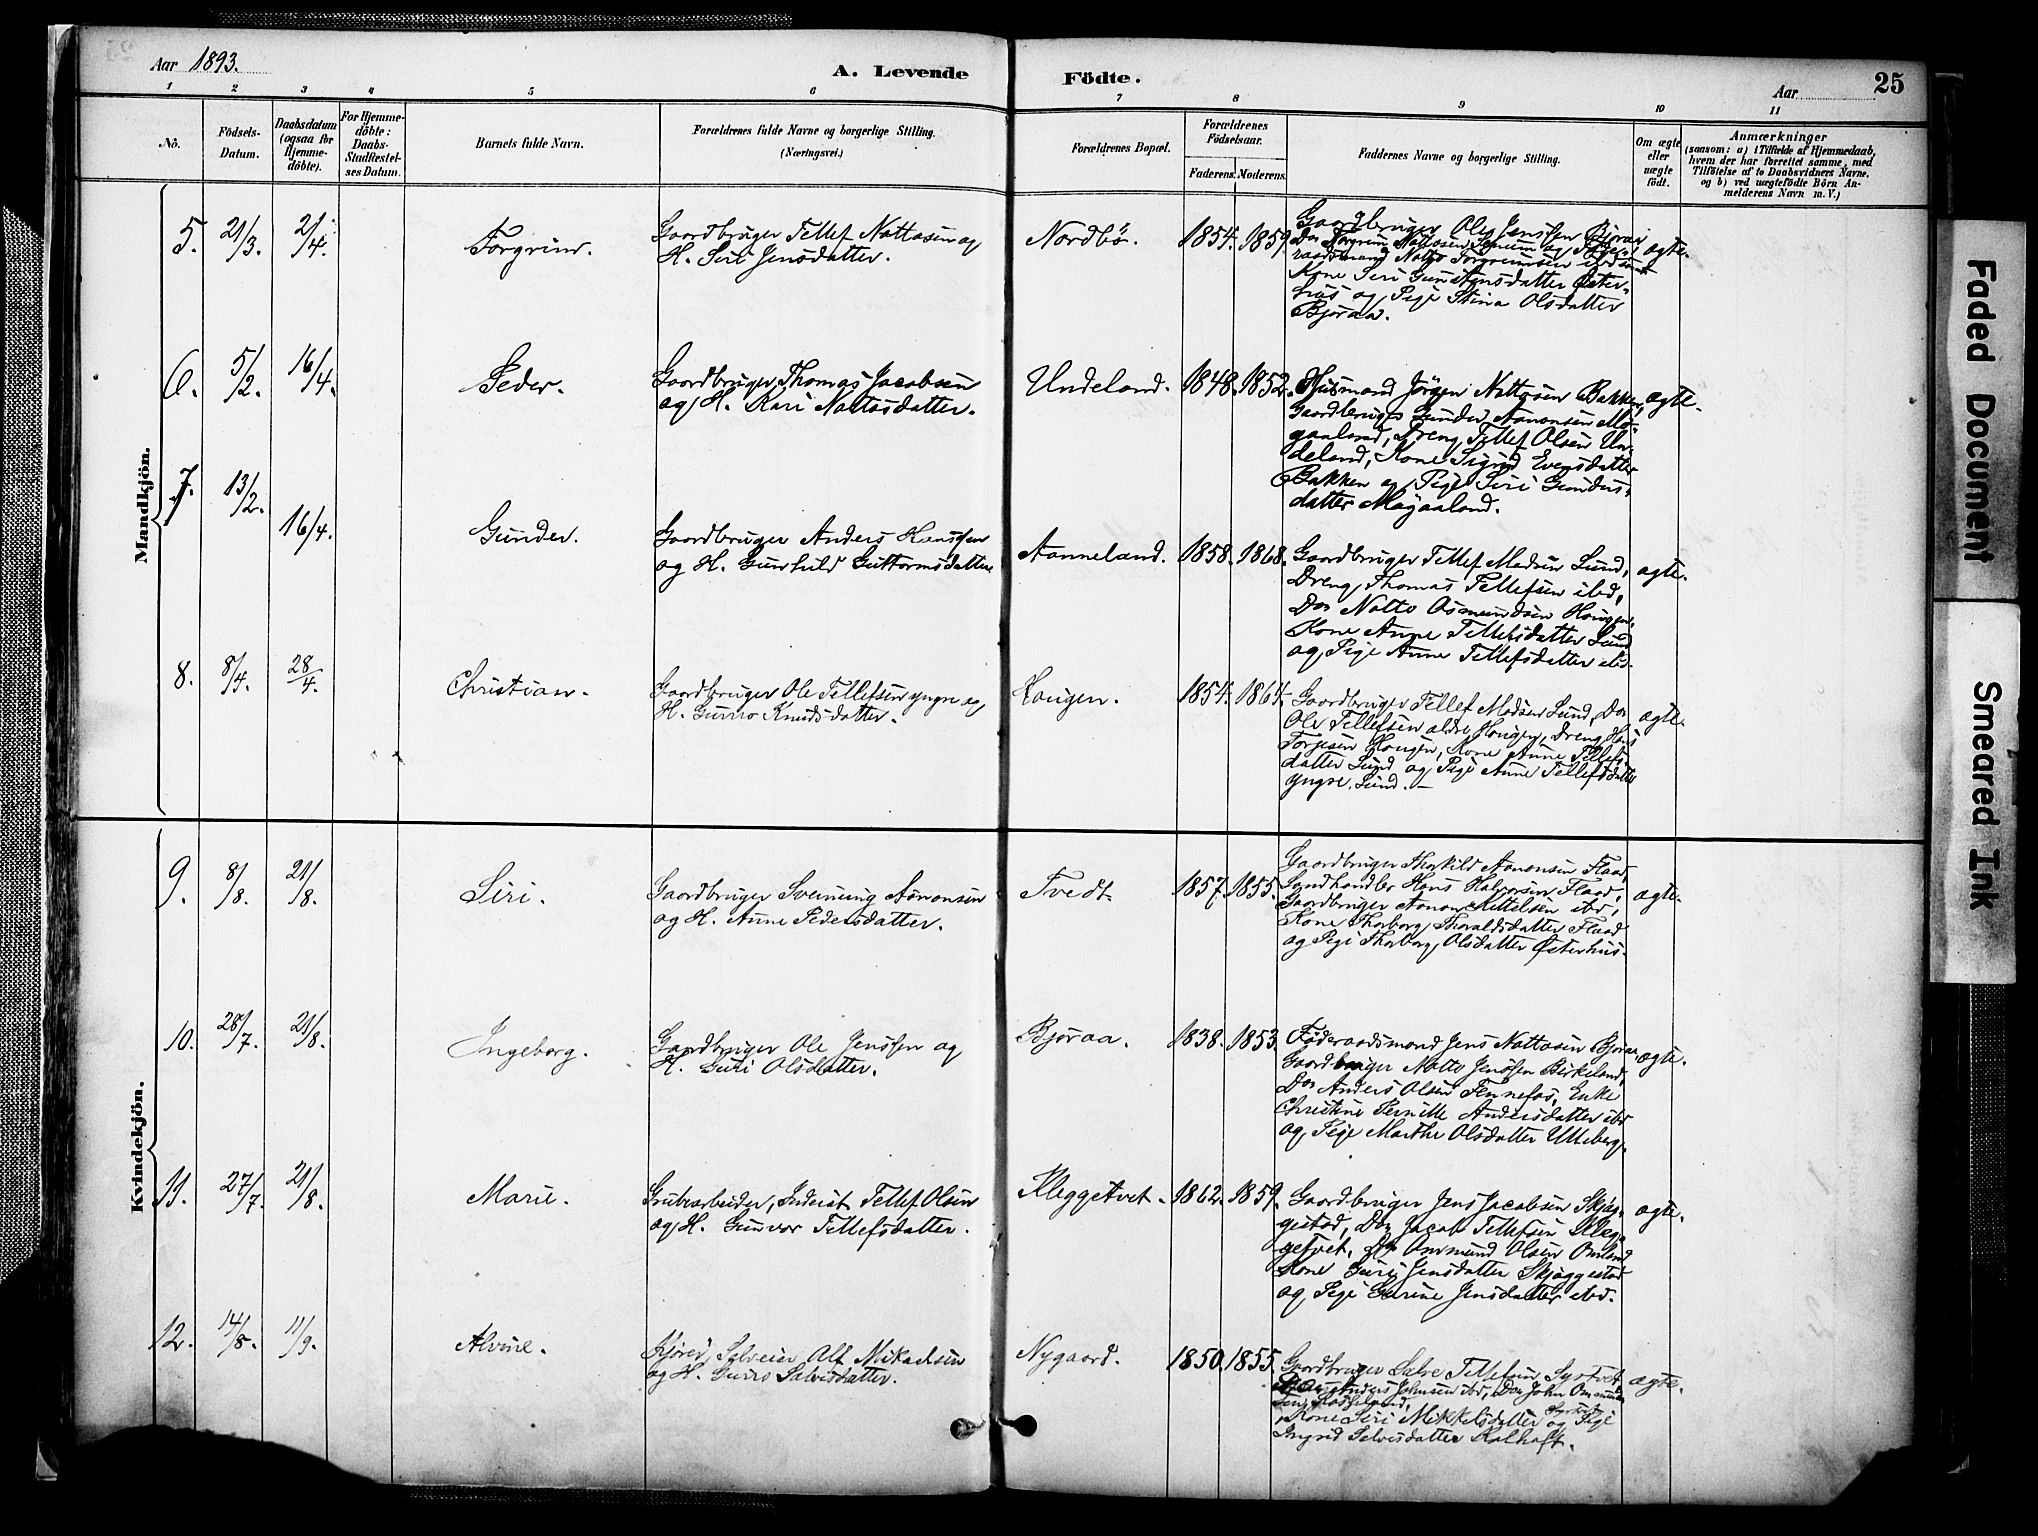 Aar 1893.
A. Levende
Födte.
Aar
25
1
2
3
4
5
6
7
8
9
10
11
Nö.
Födsels-
Datum.
Daabsdatum
(ogsaa for
Hjemme-
döbte).
For Hjemme-
döbte:
Daabs-
Stadfæstel-
ses Datum.
Barnets fulde Navn.
Forældrenes fulde Navne og borgerlige Stilling.
(Næringsvei.)
Forældrenes Bopæl.
Forældrenes
Födselsaar.
Faderens.
Moderens.
Faddernes Navne og borgerlige Stilling.
Om ægte
eller
uægte
födt.
Anmærkninger
(saasom: a) i Tilfælde af Hjemmedaab,
hvem der har forrettet samme, med
Tilföielse af to Daabsvidners Navne,
og b) ved uægtefödte Börn An-
melderens Navn m. V.)
Mandkjön.
5. 21/3. 2/4. Torgrim. Gaardbruger Tellef Nattosen og
H. Siri Jensdatter.
Nordbö. 1854. 1859.
Gaardbruger Ole Jensen Bjoraa
Kone Siri Gunstensdatter Öster-
hus og Pige Stina Olsdatter
Bjoraa.
ægte.
6. 5/2. 16/4. Peder. Gaardbruger Thomas Jacobsen
og H. Kari Nattosdatter.
Undeland. 1848. 1852.
Husmand Jörgen Nattosen Bakken,
Gaardbruger Gunder Aanonsen Mö-
gaaland, Dreng Tellef Olsen Un-
deland, Kone Sigrid Evensdatter
Bakken og Pige Siri Gunders-
datter Mögaaland.
ægte.
7. 13/2. 16/4. Gunder. Gaardbruger Anders Hanssen
og H. Gunhild Guttormsdatter
Aanneland. 1858. 1868.
Gaardbruger Tellef Madsen Lund,
Dreng Thomas Tellefsen ibd,
Do Natto Osmundsen Hougen,
Kone Anne Tellefsdatter Lund
og Pige Anne Tellefsdatter ibd.
ægte.
8. 8/4. 28/4. Christian. Gaardbruger Ole Tellefsen yngre og
H. Gurro Knudsdatter.
Hougen. 1854. 1864.
Gaardbruger Tellef Madsen Lund, Do
Ole Tellefsen ældre Hougen, Dreng Hans
Torjesen Hougen, Kone Anne Tellefs-
datter Lund og Pige Anne Tellefsdatter
yngre Lund.
ægte.
Kvindekjön.
9. 8/8. 21/8. Siri. Gaardbruger Sveinung Aanonsen
og H. Anne Pedersdatter.
Tvedt. 1857. 1855.
Gaardbruger Thorkild Aanonsen Flaad,
Landhandler Hans Halvorsen Flaad,
Gaardbruger Aanon Kittelsen ibd,
Kone Thorborg Thoraldsdatter Flaad
og Pige Thorborg Olsdatter Österhus.
ægte.
10. 28/7. 21/8. Ingeborg. Gaardbruger Ole Jenssen og
H. Guri Olsdatter.
Bjoraa. 1838. 1853.
Föderaadsmand Jens Nattosen Bjoraa,
Gaardbruger Natto Jenssen Birkeland,
Do Anders Olsen Fennefos, Enke
Christine Pernille Andersdatter ibd
og Pige Marthe Olsdatter Uleberg.
ægte.
11. 27/7. 21/8. Marie. Grubearbeider, Inderst Tellef Olsen
og H. Gunvor Tellefsdatter.
Kleggetvet. 1862. 1859.
Gaardbruger Jens Jacobsen Skjæg-
gestad, Do Jacob Tellefsen Kleg-
getvet, Do Ommund Olsen Omland
Kone Guri Jensdatter Skjæggestad
og Pige Gurine Jensdatter ibd.
ægte.
12. 14/8. 11/9. Alvine. Kjörer, Selveier Alf Mikaelsen
og H. Gurro Salvesdatter.
Nygaard. 1850. 1855.
Gaardbruger Salve Tellefsen Syrtvet
Anders Johnsen ibd, Do John Ommund-
sen
Kone Siri Mikkelsdatter Syrtvet og Pige
Ingrid Salvesdatter Kalhoft.
ægte.
Faded Document
Smeared Ink